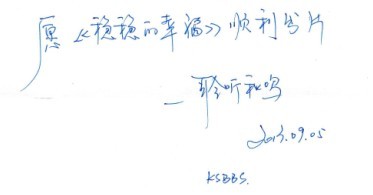 愿《稳稳的幸福》顺利出片
—聆听秋鸣
2013.09.05
KSBBS.